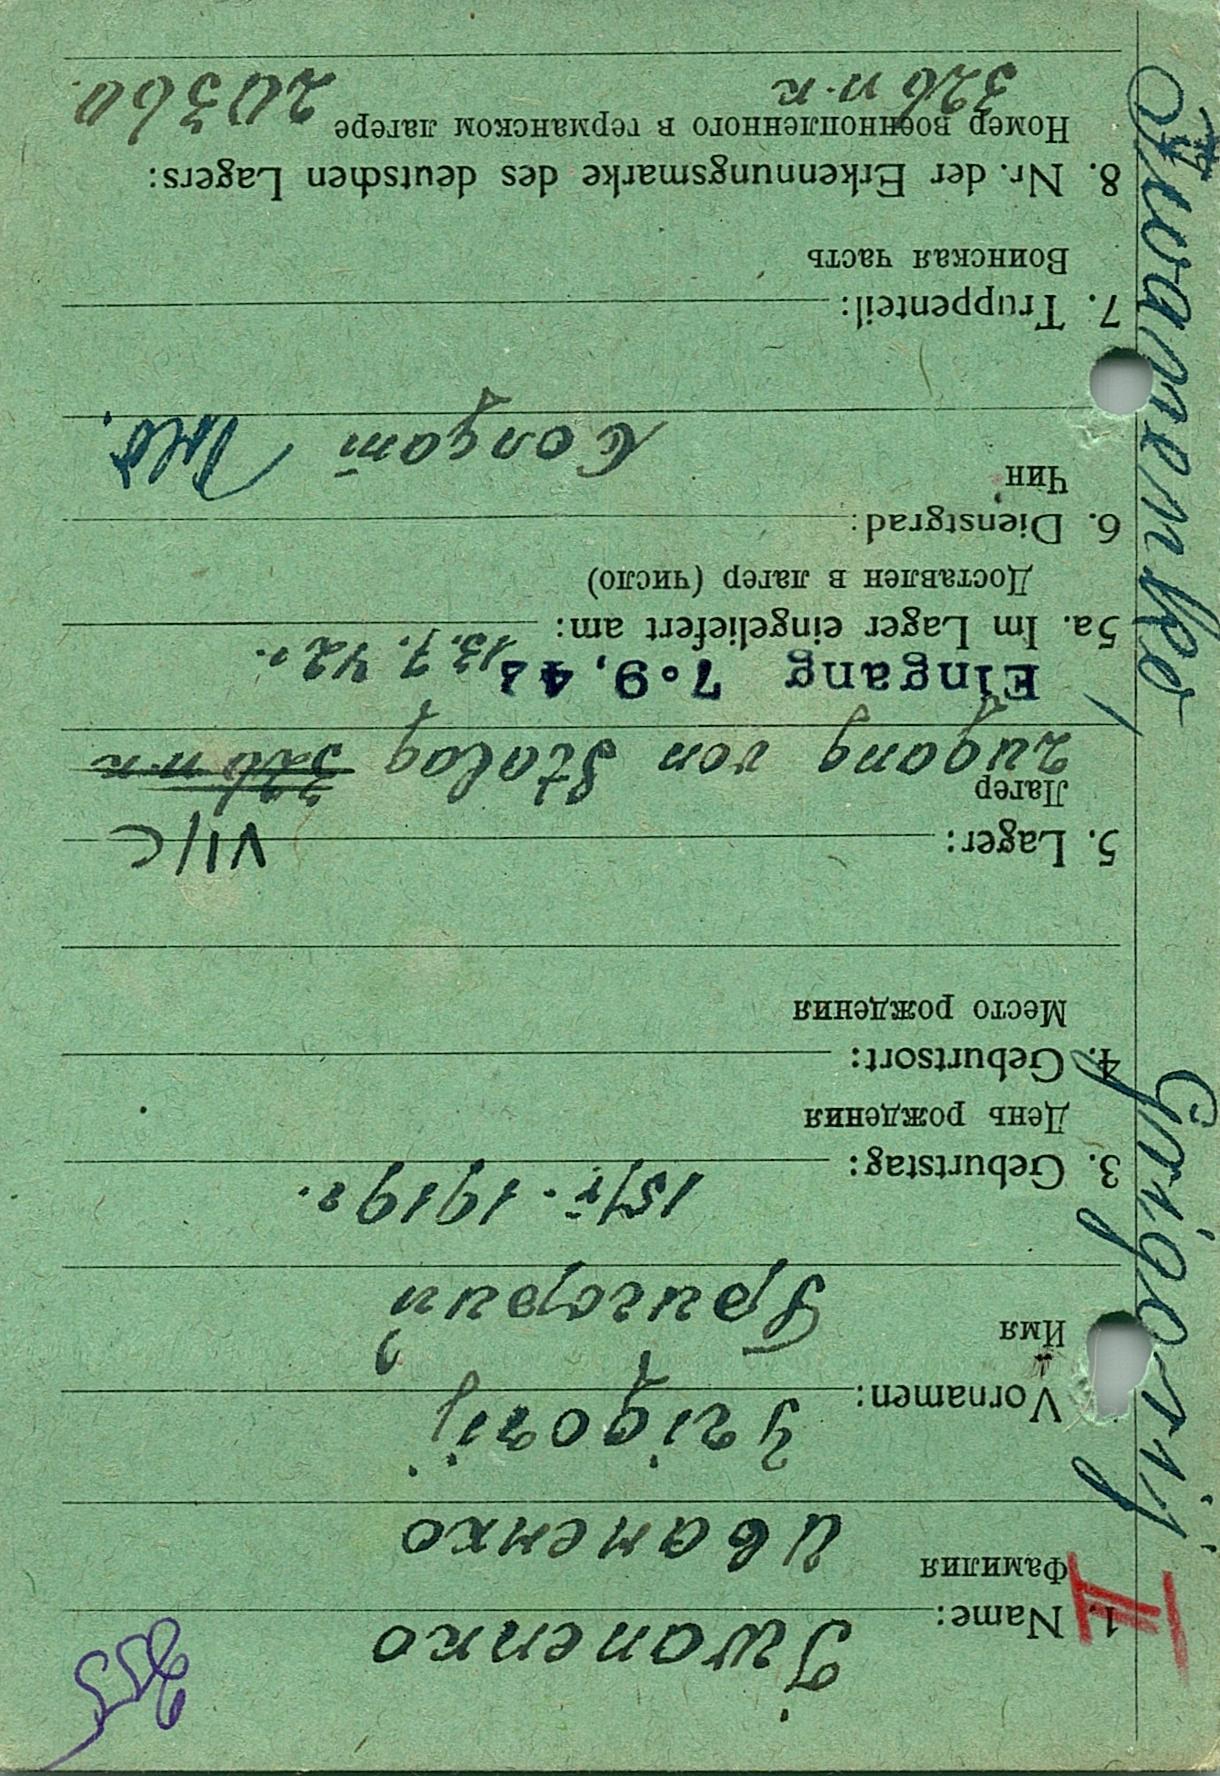 Iwanenko
1. Name:
Фамилия
Иваненко
Grigorij
Vornamen:
Имя
Григорий
3. Geburtstag:
День рождения
4. Geburtsort:
Место рождения
VI/C
5. Lager:
Лагер
Zugang von Stalag 326 п-к
Eingang 7.9.42 13.7.42 г.
5a. Im Lager eingeliefert am:
Доставлен в лагер (число)
6. Dienstgrad:
Чин
Солдат
7. Truppenteil:
Воинская часть
8. Nr. der Erkennungsmarke des deutschen Lagers:
Номер военнопленного в германском лагере
326 п-к 20360
Iwanenko, Grigorij
II